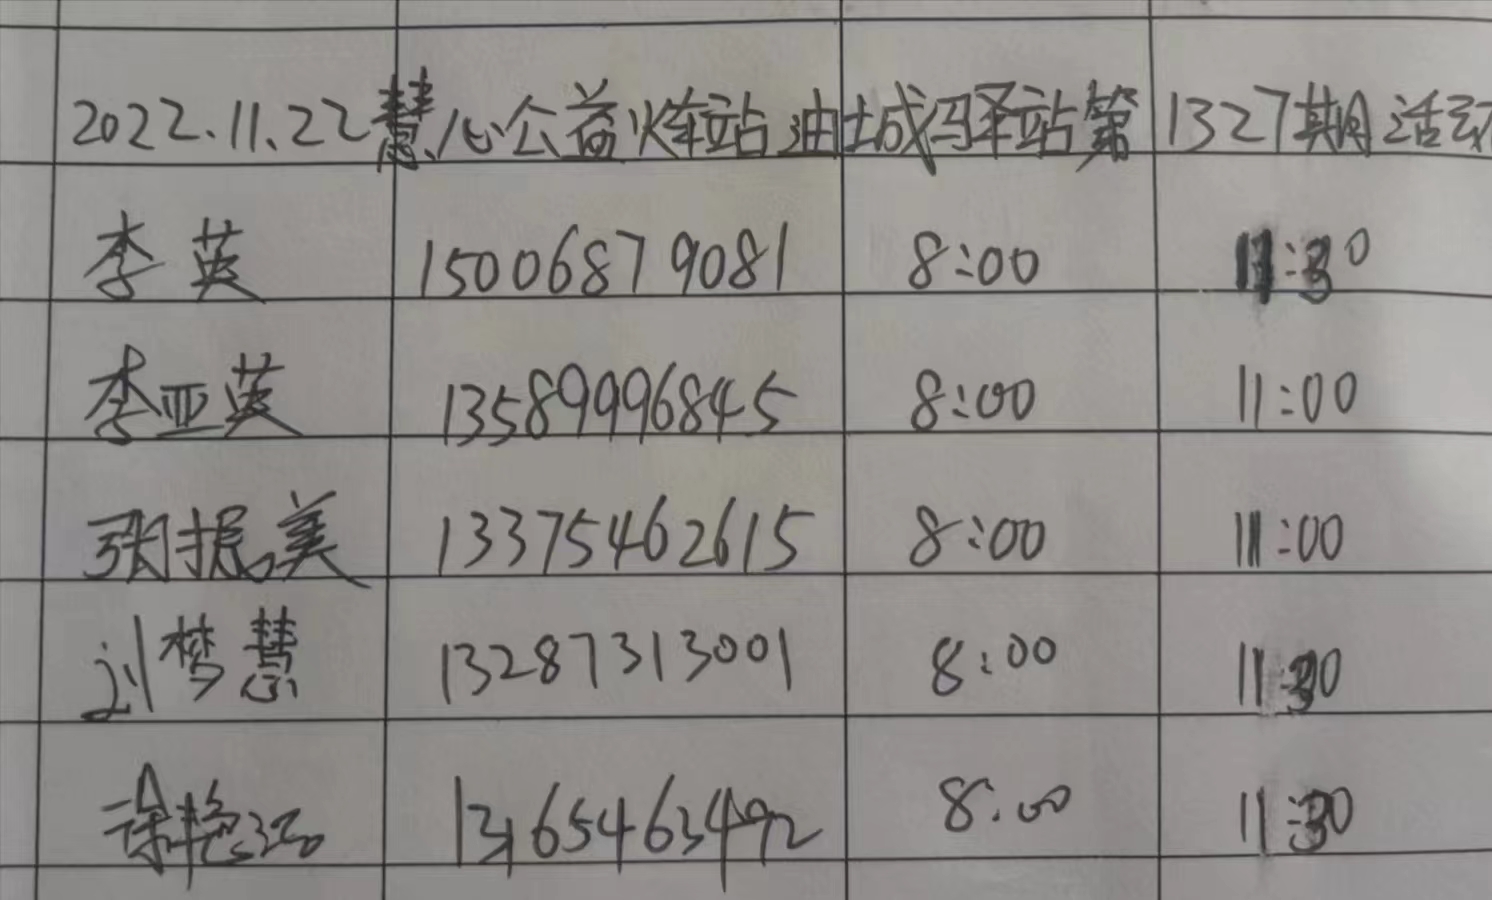 2022.11.22慧心公益烽站油城驿站第1327期活动
李英 15006879081 8:00 11:30
李亚英 13589996845 8:00 11:00
张振美 13375462615 8:00 11:00
刘梦慧 13287313001 8:00 11:30
艳 8:00 11:30